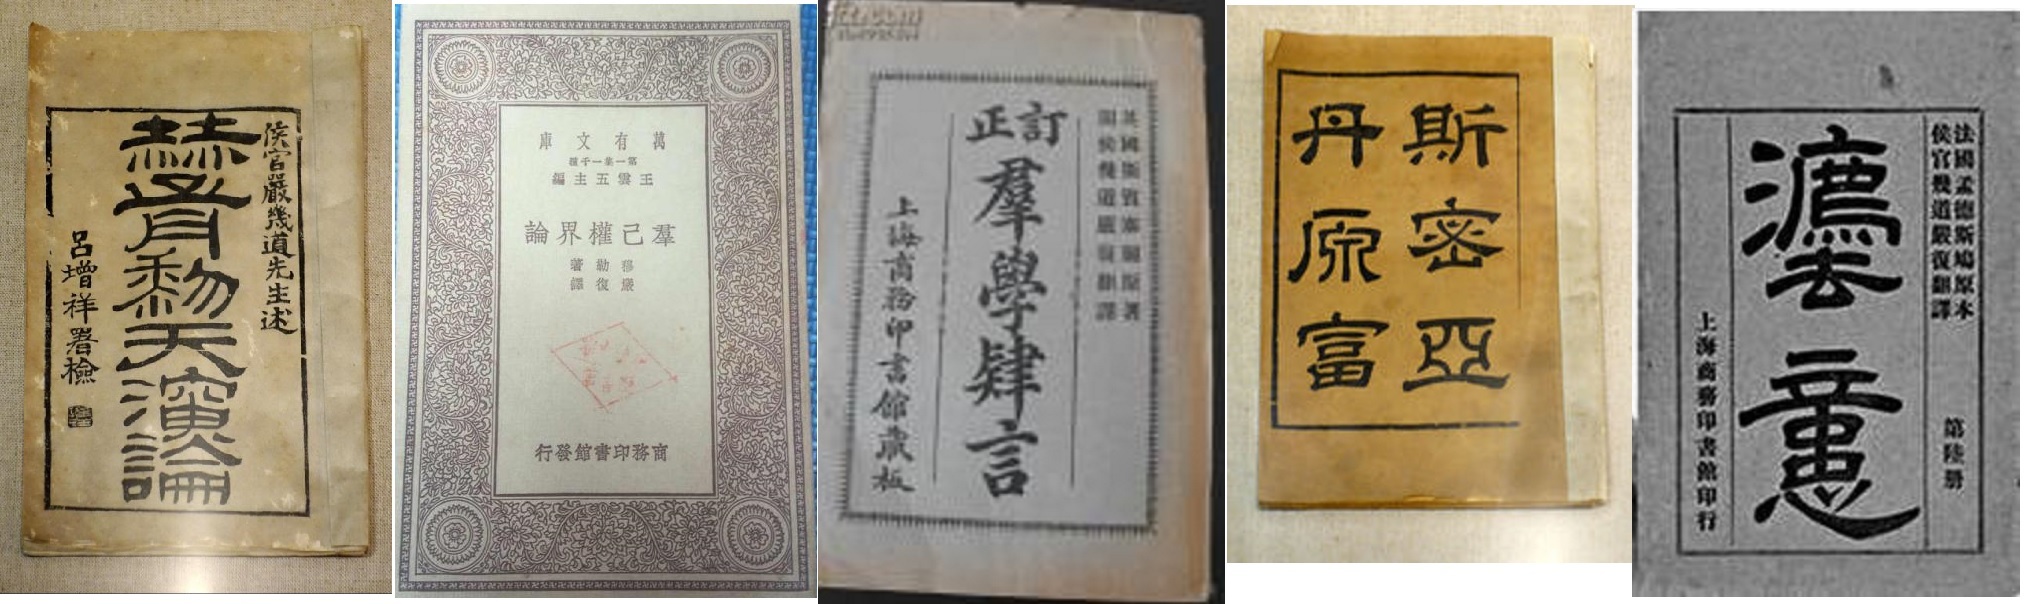 侯官嚴幾道先生述
赫胥黎天演論
呂增祥署檢
萬有文庫
第一集一千種
王雲五主編
羣己權界論
穆勒著
嚴復譯
商務印書館發行
英國斯賓塞爾原著
侯官嚴幾道嚴復翻譯
訂正
羣學肄言
上海商務印書館藏板
斯密亞
丹原富
法國孟德斯鳩原本
侯官幾道嚴復翻譯
第陸册
灋意
上海商務印書館印行